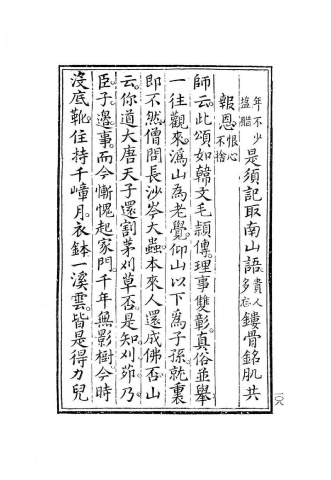 年不少鹽醋是須記取南山語貴人多忘鏤骨銘肌共
報恩恨心不捨
師云此頌如韓文毛頴傳理事雙彰真俗並舉
一往觀來溈山為老覺仰山以下為子孫就裏
即不然僧問長沙岑大蟲本來人還成佛否山
云你道大唐天子還割茅刈草否是知刈茆乃
臣子邊事而今慚愧起家門千年無影樹今時
沒底靴住持千嶂月衣鉢一溪雲皆是得力兒